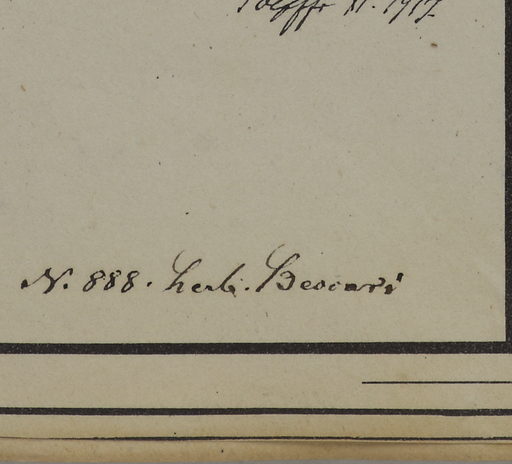 XI. 1917.
N. 888. herb. Beccari